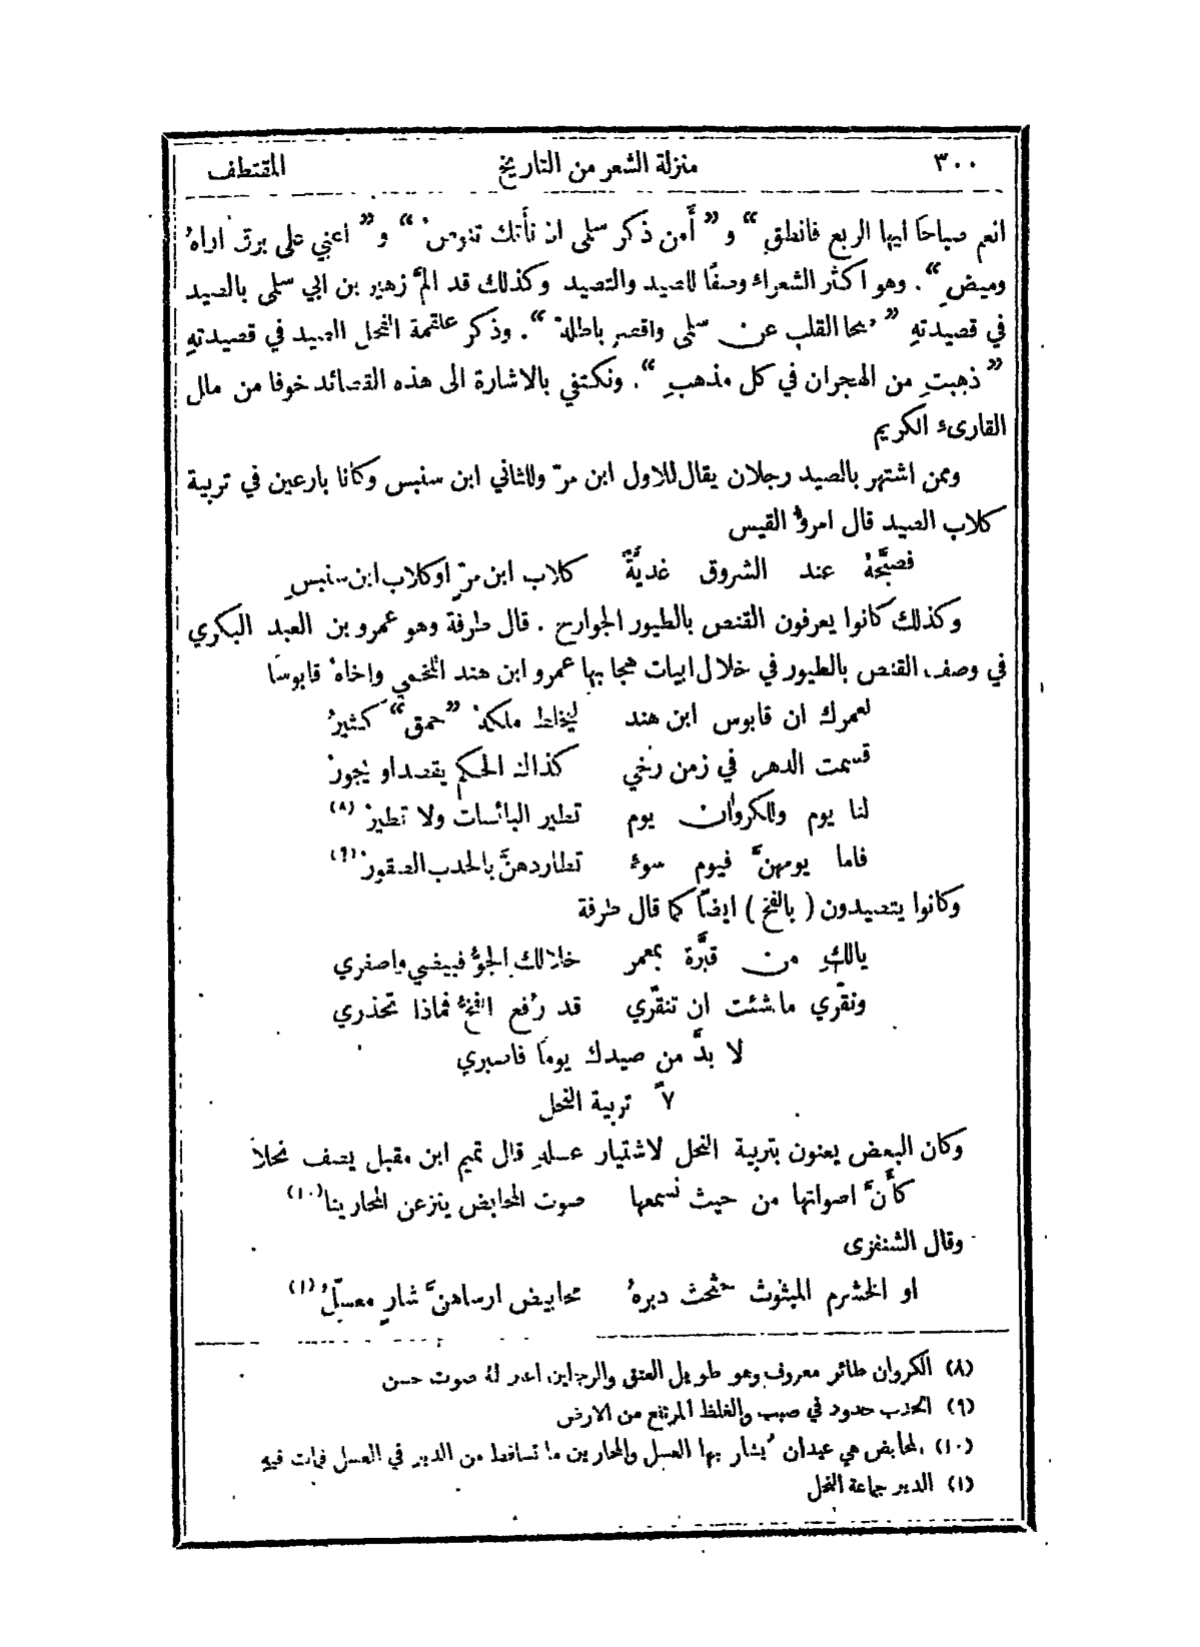 ٣٠٠ منزلة الشعر من التاريخ المقتطف
انعم صباحًا ايها الربع فانطقِ “ و ” أَمن ذكر سلمى ان نأتك تنوص “ و ” اعني على برق اراهُ
وميضِ “ . وهو اكثر الشعراء وصفًا للصيد والتصيد وكذلك قد المَّ زهير بن ابي سلمى بالصيد
في قصيدتهِ ” صحا القلب عن سلمى واقصر باطلهْ “ . وذكر علقمة الفحل الصيد في قصيدتهِ
” ذهبتِ من الهجران في كل مذهبِ “ . ونكتفي بالاشارة الى هذه القصائد خوفا من ملل
القارىء الكريم
وممن اشتهر بالصيد رجلان يقال للاول ابن مرّ وللثاني ابن سنبس وكانا بارعين في تربية
كلاب الصيد قال امرؤ القيس
فصبَّحهُ عند الشروق غديَّةً كلاب ابن مرٍّ او كلاب ابن سنبسِ
وكذلك كانوا يعرفون القنص بالطيور الجوارح . قال طرفة وهو عمرو بن العبد البكري
في وصف القنص بالطيور في خلال ابيات هجا بها عمرو ابن هند اللخمي واخاهُ قابوسًا
لعمرك ان قابوس ابن هند ليخلط ملكهُ ” حمق “ كثيرُ
قسمت الدهر في زمن رخي كذاك الحكم يقصد او يجورُ
لنا يوم وللكروان يوم تطير البائسات ولا نطيرُ (٨)
فاما يومهنَّ فيوم سوءٍ تطاردهنَّ بالحدب الصقورُ (٩)
وكانوا يتصيدون ( بالفخ ) ايضًا كما قال طرفة
يالكِ من قبَّرة بمعمر خلا لك الجوُّ فبيضي واصفري
ونقّري ما شئت ان تنقّري قد رُفع الفخُّ فماذا تحذري
لا بدَّ من صيدك يومًا فاصبري
٧ً تربية النحل
وكان البعض يعنون بتربية النحل لاشتيار عسلهِ قال تميم ابن مقبل يصف نحلًا
كأَنَّ اصواتها من حيث نسمعها صوت المحابض ينزعن المحارينا (١٠)
وقال الشنفرى
او الخشرم المبثوث حثحث دبرهُ محابيض ارساهنَّ شارٍ معسّلُ (١)
(٨) الكروان طائر معروف وهو طويل العنق والرجلين اغبر لهُ صوت حسن
(٩) الحدب حدود في صبب والغلظ المرتفع من الارض
(١٠) المحابض هي عيدان يُشار بها العسل والمحارين ما تساقط من الدبر في العسل فمات فيهِ
(١) الدبر جماعة النحل